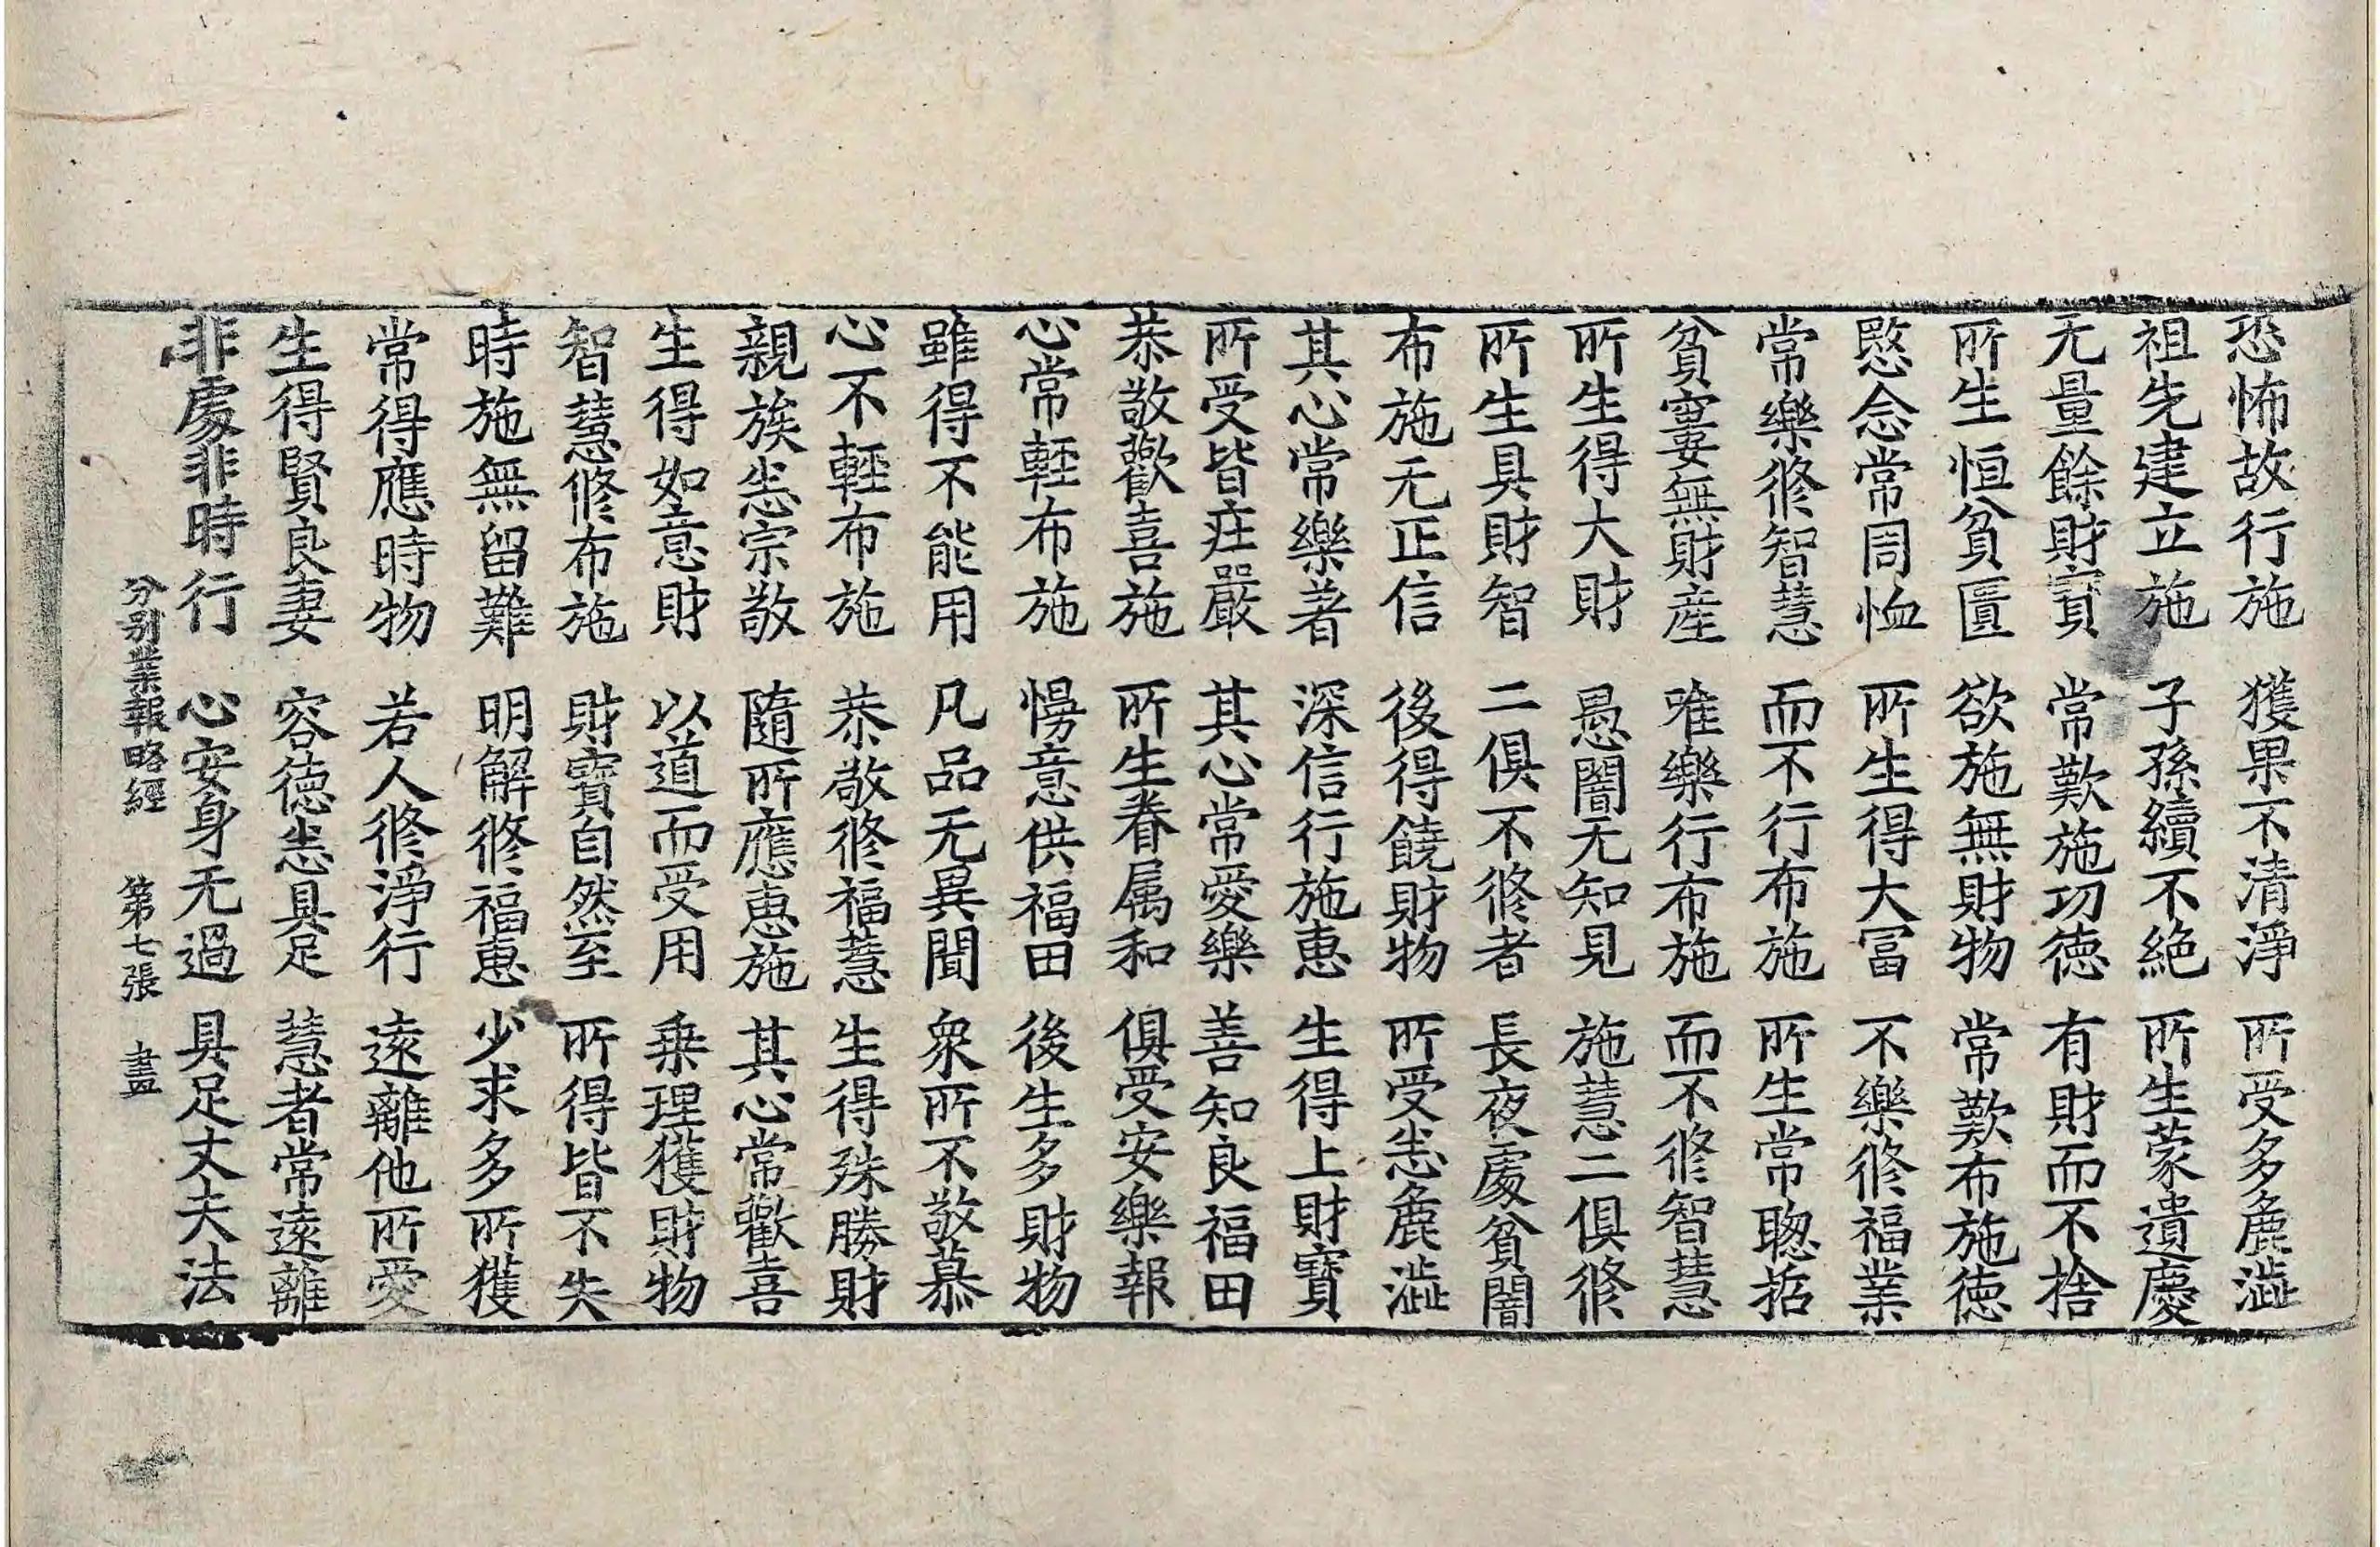 恐怖故行施　獲果不清淨　所受多麁澁
祖先建立施　子孫續不絶　所生蒙遺慶
无量餘財寳　常歎施功徳　有財而不捨
所生恒貧匱　欲施無財物　常歎布施徳
愍念常周恤　所生得大冨　不樂修福業
常樂修智慧　而不行布施　所生常聦哲
貧窶無財産　唯樂行布施　而不修智慧
所生得大財　愚闇无知見　施慧二俱修
所生具財智　二俱不修者　長夜處貧闇
布施无正信　後得饒財物　所受恙麁澁
其心常樂著　深信行施惠　生得上財寳
所受皆莊嚴　其心常愛樂　善知良福田
恭敬歡喜施　所生眷属和　俱受安樂報
心常輕布施　慢意供福田　後生多財物
雖得不能用　凡品无異聞　衆所不敬慕
心不輕布施　恭敬修福慧　生得殊勝財
親族恙宗敬　隨所應惠施　其心常歡喜
生得如意財　以道而受用　乗理獲財物
智慧修布施　財寳自然至　所得皆不失
時施無留難　明解修福惠　少求多所獲
常得應時物　若人修淨行　遠離他所愛
生得賢良妻　容徳恙具足　慧者常遠離
非處非時行　心安身无過　具足丈夫法
分别業報略經　第七張　盡